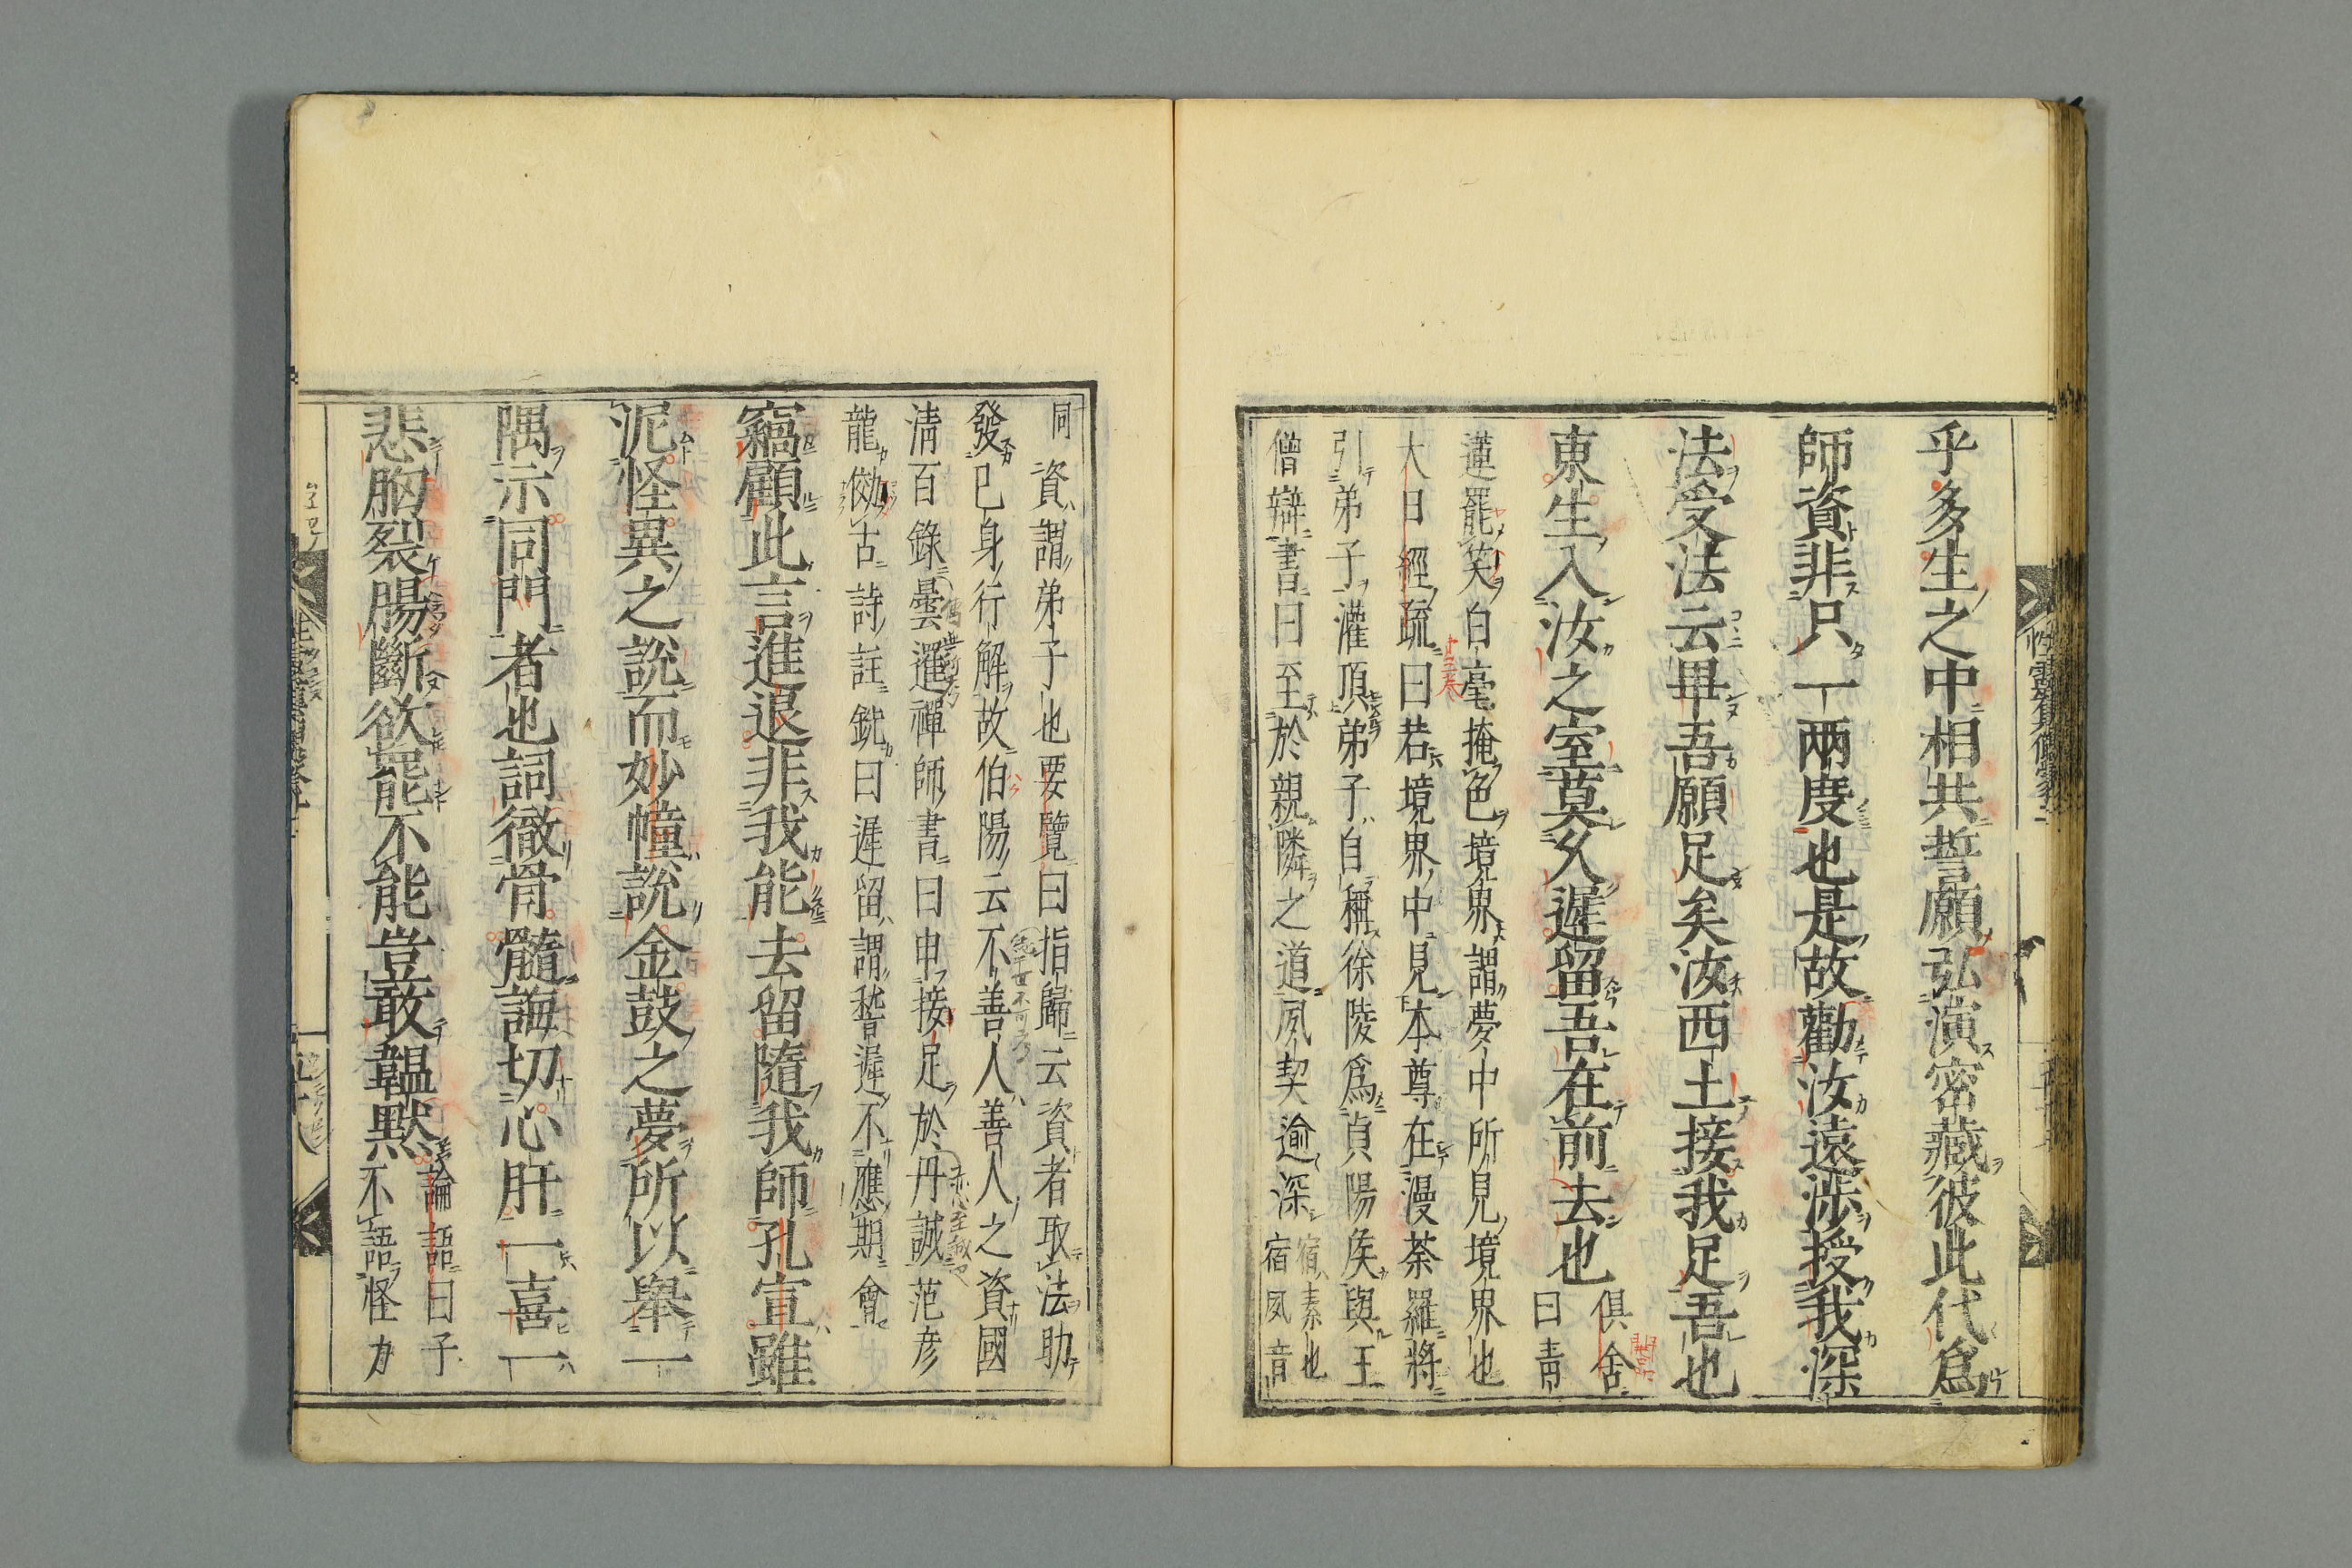 乎多生之中相共誓願弘演密藏彼此代爲
師資非只一兩度也是故勸汝遠涉授我深
法受法云畢吾願足矣汝西土接我足吾也
東生入汝之室莫久遲留吾在前去也
俱舍
曰青
蓮罷笑白毫掩色境界謂夢中所見境界也
大日經疏曰若境界中見本尊在漫荼羅將
引弟子灌頂弟子自稱徐陵爲貞陽侯與王
僧辯書曰至於親隣之道夙契逾深
宿素也
宿夙音
同資謂弟子也要覽曰指歸云資者取法助
發已身行解故伯陽云不善人善人之資國
清百錄曇暹禪師書曰申接足於丹誠范彦
龍傚古詩註銑曰遲留謂㳺遲不應期會
竊顧此言進退非我能去留隨我師孔宣雖
泥怪異之說而妙幢說金鼓之夢所以舉一
隅示同門者也詞徹骨髓誨切心肝一喜一
悲胸裂腸斷欲罷不能豈敢韞默
論語曰子
不語怪力